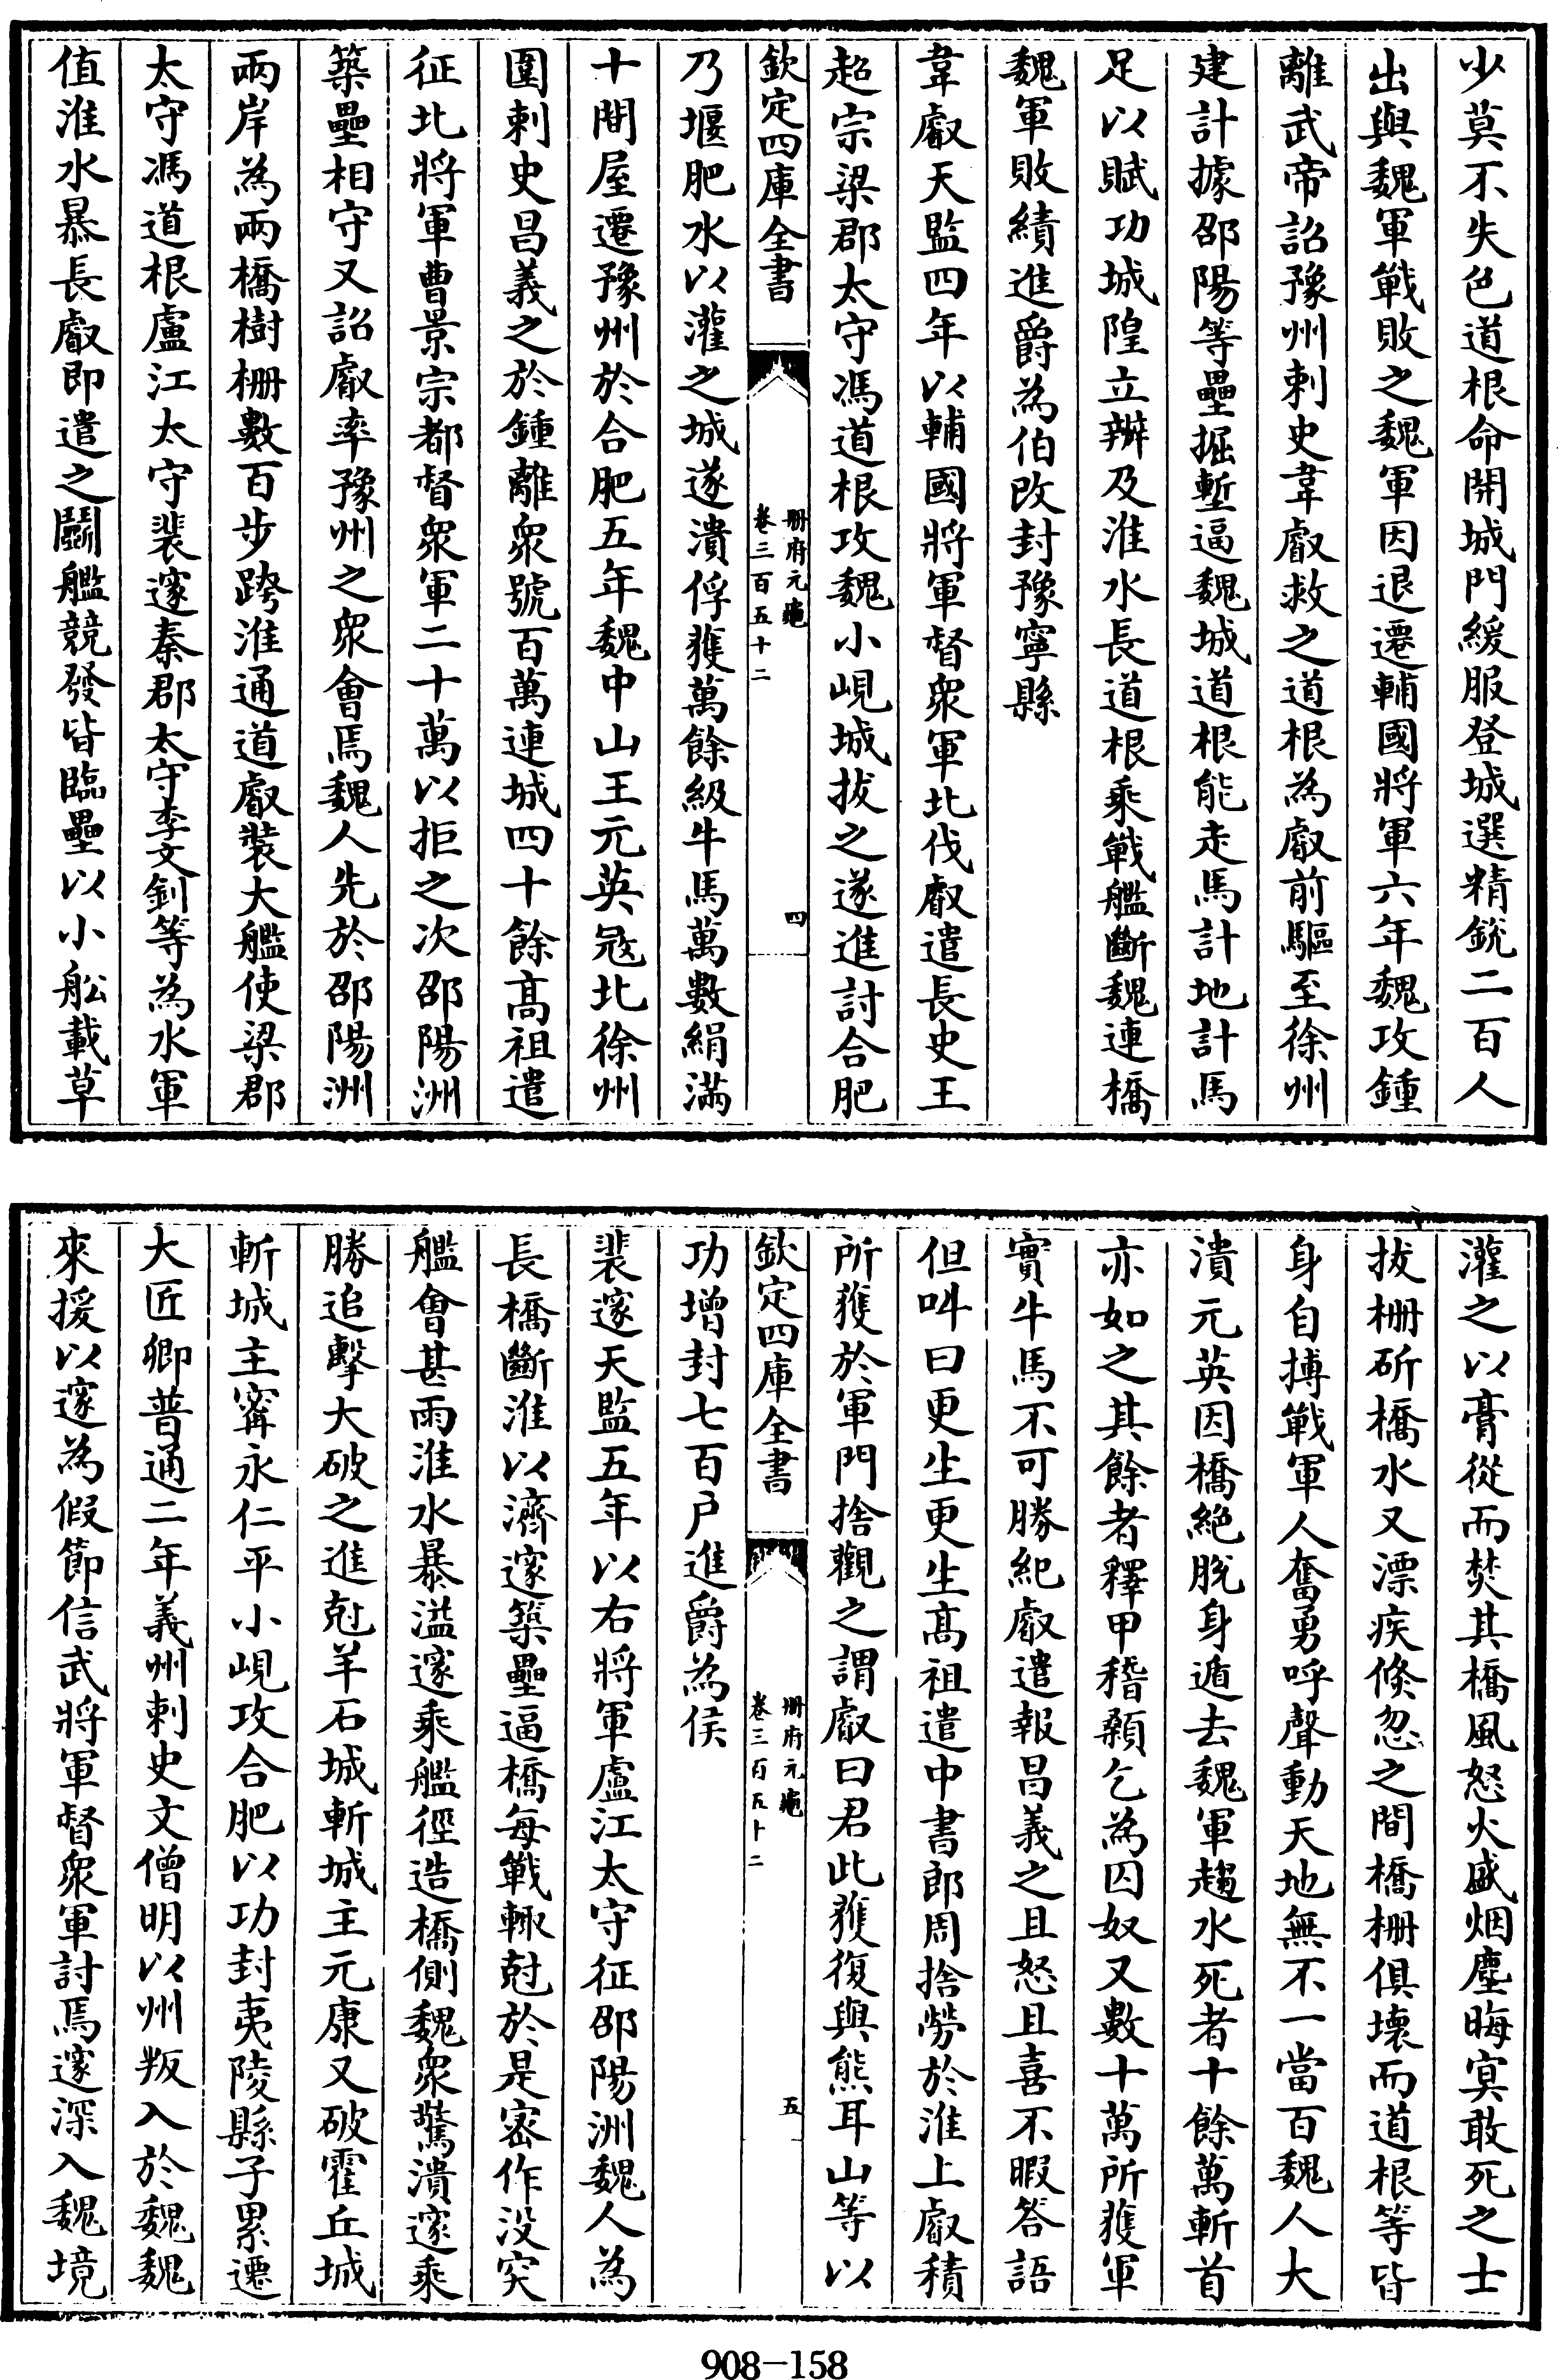 少莫不失色道根命開城門緩服登城選精銳二百人
出與魏軍戰敗之魏軍因退遷輔國將軍六年魏攻鍾
離武帝詔豫州刺史韋叡救之道根為叡前驅至徐州
建計據邵陽等壘掘塹逼魏城道根能走馬計地計馬
足以賦功城隍立辦及淮水長道根乘戰艦斷魏連橋
魏軍敗績進爵為伯改封豫寧縣
韋叡天監四年以輔國將軍督衆軍北伐叡遣長史王
超宗梁郡太守馮道根攻魏小峴城拔之遂進討合肥
欽定四庫全書
冊府元龜
卷三百五十二
四
乃堰肥水以灌之城遂潰俘獲萬餘級牛馬萬數絹滿
十間屋遷豫州於合肥五年魏中山王元英宼北徐州
圍刺史昌義之於鍾離衆號百萬連城四十餘髙祖遣
征北將軍曹景宗都督衆軍二十萬以拒之次邵陽洲
築壘相守又詔叡率豫州之衆會焉魏人先於邵陽洲
兩岸為兩橋樹柵數百步跨淮通道叡裝大艦使梁郡
太守馮道根盧江太守裴邃秦郡太守李文釗等為水軍
值淮水暴長叡即遣之鬬艦競發皆臨壘以小舩載草
灌之以膏從而焚其橋風怒火盛烟塵晦㝠敢死之士
拔柵斫橋水又漂疾倏忽之間橋柵俱壞而道根等皆
身自搏戰軍人奮勇呼聲動天地無不一當百魏人大
潰元英因橋絶脫身遁去魏軍趨水死者十餘萬斬首
亦如之其餘者釋甲稽顙乞為囚奴又數十萬所獲軍
實牛馬不可勝紀叡遣報昌義之且怒且喜不暇答語
但叫曰更生更生髙祖遣中書郎周捨勞於淮上叡積
所獲於軍門捨觀之謂叡曰君此獲復與熊耳山等以
欽定四庫全書
冊府元龜
卷三百五十二
五
功增封七百户進爵為侯
裴邃天監五年以右將軍盧江太守征邵陽洲魏人為
長橋斷淮以濟邃築壘逼橋每戰輒尅於是宻作沒突
艦會甚雨淮水暴溢邃乘艦徑造橋側魏衆驚潰邃乘
勝追擊大破之進尅羊石城斬城主元康又破霍丘城
斬城主甯永仁平小峴攻合肥以功封夷陵縣子累遷
大匠卿普通二年義州刺史文僧明以州叛入於魏魏
來援以邃為假節信武將軍督衆軍討焉邃深入魏境
908-158